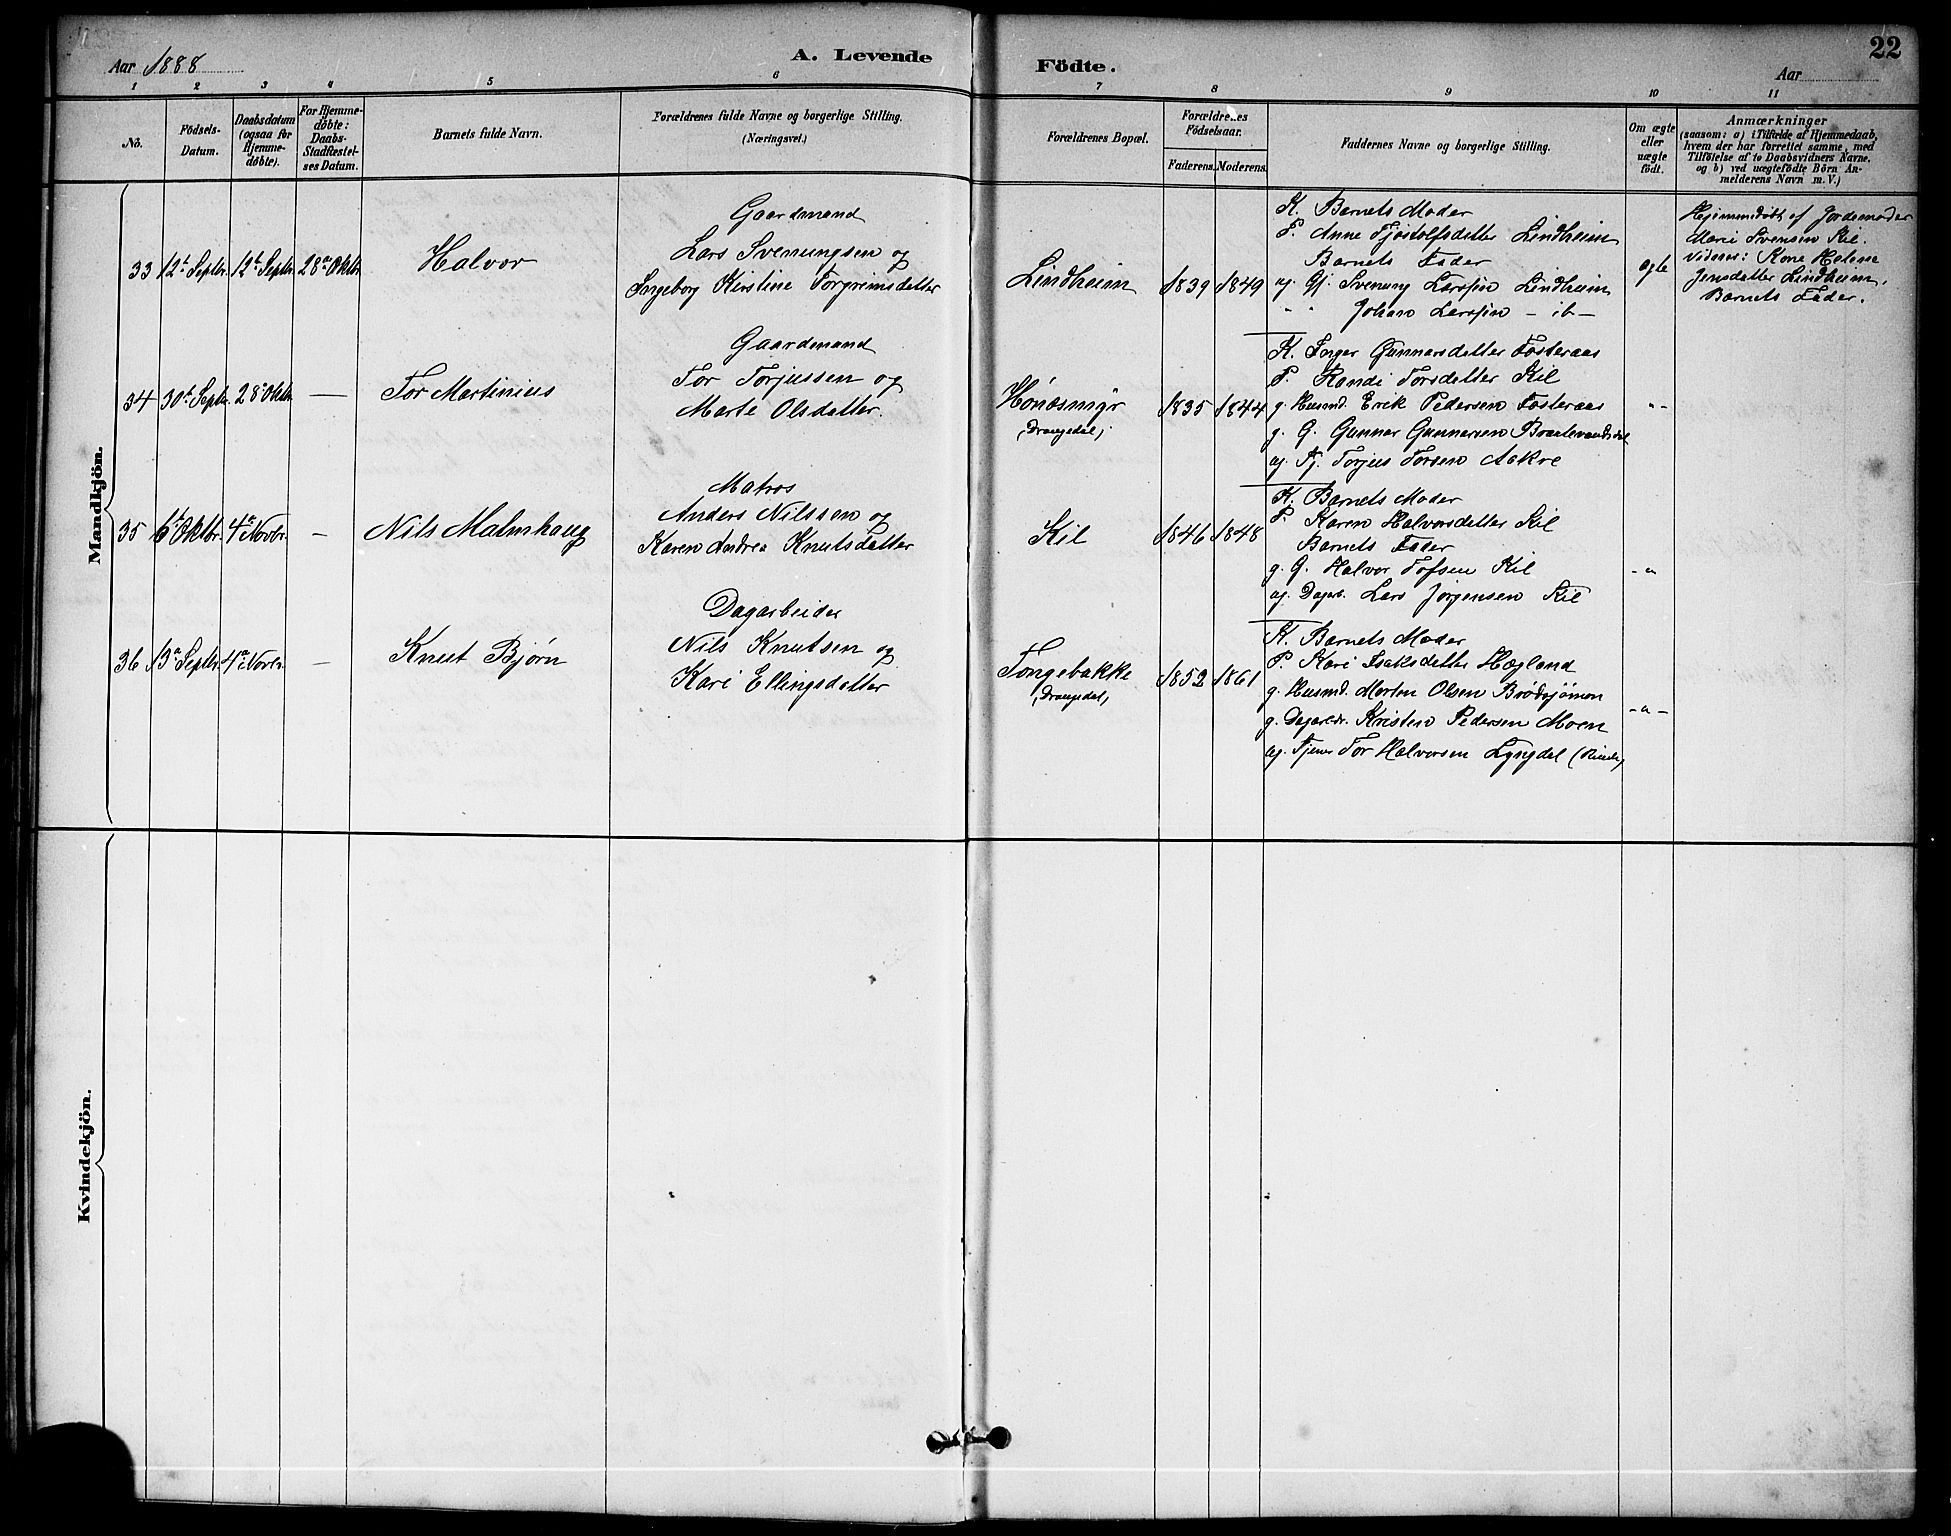 Aar 1888
A. Levende
Födte.
22
Aar
1 2 3 4 5 6 7 8 9 10 11
No.
Födsels-
Datum.
Daabsdatum
(ogsaa for
Hjemme-
döbte).
For Hjemme-
döbte:
Daabs-
Stadfæstel-
ses Datum.
Barnets fulde Navn.
Forældrenes fulde Navne og borgerlige Stilling.
(Næringsvei.)
Forældrenes Bopæl.
Forældrenes
Födselsaar.
Faderens. Moderens.
Faddernes Navne og borgerlige Stilling.
Om ægte
eller
uægte
födt.
Anmærkninger
(saasom: a) i Tilfælde af Hjemmedaab,
hvem der har forrettet samme, med
Tilföielse af to Daabsvidners Navne.
og b) ved uægtefödte Börn An-
melderens Navn m. V.)
Mandkjön.
33 12t Septbr. 12t Septbr. 28de Oktbr.
Halvor
Gaardmand
Lars Svenungsen og
Ingeborg Kirstine Torgrimsdatter
Lindheim
1839 1849
K. Barnets Moder
P. Anne Tjöstolfsdatter Lindheim
Barnets Fader
og. Gj. Svenung Larssen Lindheim
" " Johan Larssen - ib -
ægte
Hjemmedöbt af Jordemoder
Marie Svensen Kil.
Vidner: Kone Helene
Jensdatter Lindheim.
Barnets Fader.
34 30t Septbr. 28de Oktbr. —
Tor Martinius
Gaardmand
Tor Torjussen og
Marte Olsdatter.
Hönæsmyr
(Drangedal)
1835 1844
K. Inger Gunnarsdatter Fosteraas
P. Randi Torsdatter Kil
g. Husmd. Erik Pedersen Fosteraas
g. G. Gunnar Gunnarsen
og. Tj. Torjus Torsen Aakre
"-
35 6t Oktbr. 4de Novbr. -
Nils Malmhaug
Matros
Anders Nilssen og
Karen Andrea Knutsdatter
Kil
1846 1848
K. Barnets Moder
P. Karen Halvorsdatter Kil
Barnets Fader
g. G. Halvor Tofsen Kil
og. Dagarb. Lars Jørgensen Kil
-"
36 13de Septbr. 4de Novbr. —
Knut Bjørn
Dagarbeider
Nils Knutsen og
Kari Ellingsdatter
Tongebakke
(Drangedal)
1852 1861
K. Barnets Moder
P. Kari Isaksdatter Hægland
g. Husmd. Morten Olsen Brødsjömon
g. Dagarbdr. Kristen Pedersen Moen
og. Tjener Tor Halvorsen Lyngdal
-"-
Kvindekjön.